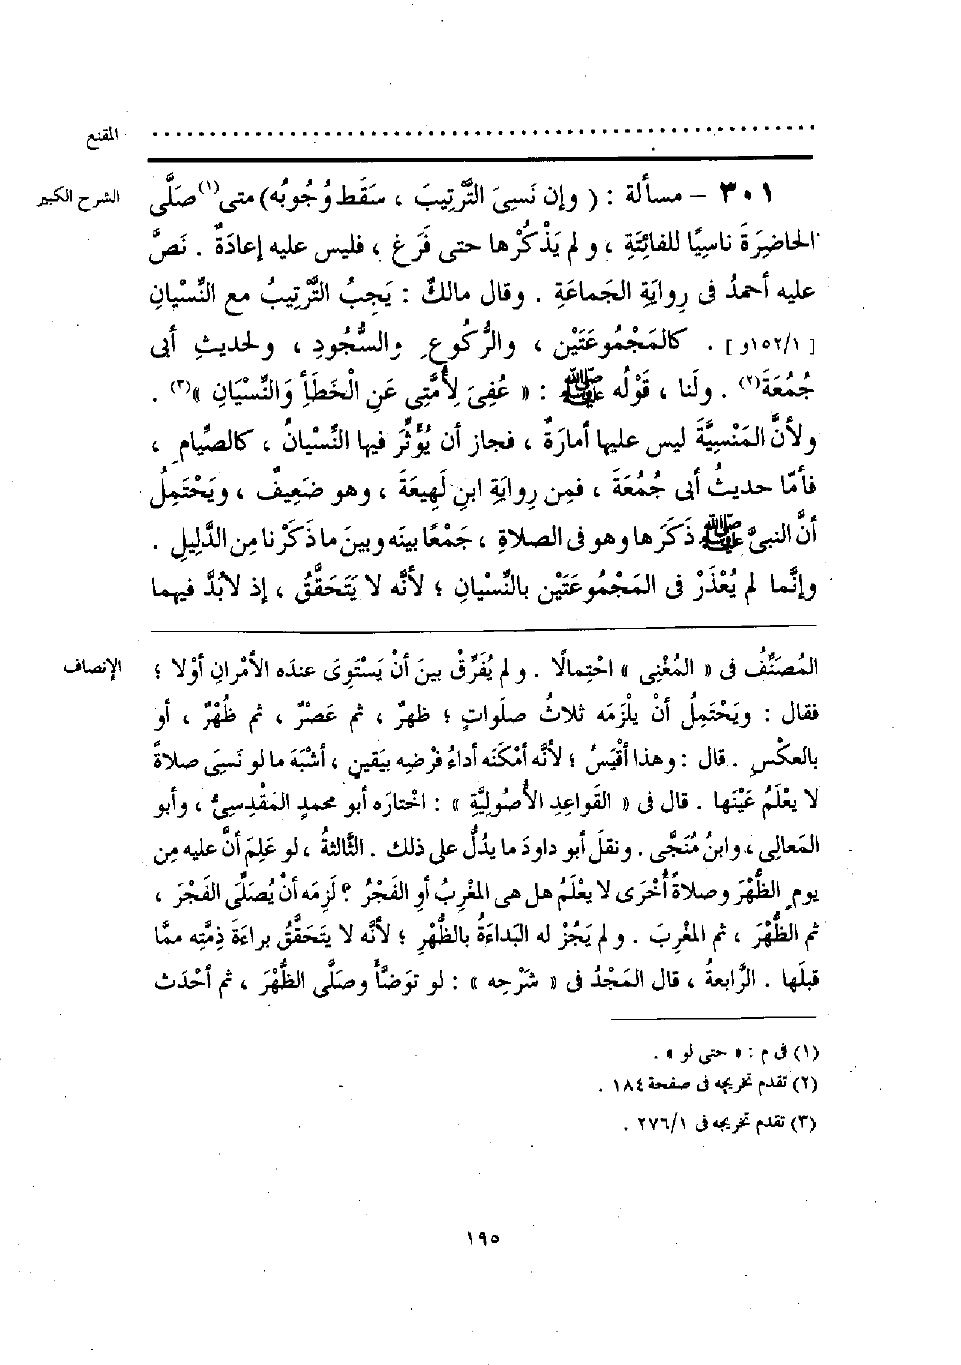 المقنع ..............................................................
الشرح الكبير
٣٠١ – مسألة : ( وإن نَسِىَ التَّرْتِيبَ ، سَقَط وُجُوبُه) متى(١) صَلَّى
الحاضِرَةَ ناسِيًا للفائِتَةِ ، و لم يَذْكُرْها حتى فَرَغ ، فليس عليه إعادَةٌ . نَصَّ
عليه أحمدُ فى رِوايَةِ الجَماعَةِ . وقال مالكٌ : يَجِبُ التَّرْتِيبُ مع النِّسْيانِ
[ ١٥٢/١و ] . كالمَجْمُوعَتَيْن ، والرُّكُوعِ والسُّجُودِ ، ولحديثِ أبى
جُمُعَةَ(٢) . ولَنا ، قَوْلُه ﷺ : « عُفِىَ لِأُمَّتِى عَنِ الْخَطَأِ وَالنِّسْيَانِ »(٣) .
ولأنَّ المَنْسِيَّةَ ليس عليها أمارَةٌ ، فجاز أن يُؤَثِّرَ فيها النِّسْيانُ ، كالصِّيامِ ،
فأمّا حديثُ أبى جُمُعَةَ ، فمِن رِوايَةِ ابنِ لَهِيعَةَ ، وهو ضَعِيفٌ ، ويَحْتَمِلُ
أنَّ النبىَّ ﷺ ذَكَرَها وهو فى الصلاةِ ، جَمْعًا بينَه وبينَ ما ذَكَرْنا مِن الدَّلِيلِ .
وإنَّما لم يُعْذَرْ فى المَجْمُوعَتَيْن بالنِّسْيانِ ؛ لأنَّه لا يَتَحَقَّقُ ، إذ لابُدَّ فيهما
الإنصاف
المُصَنِّفُ فى « المُغْنِى » احْتِمالًا . و لم يُفَرِّقْ بينَ أنْ يَسْتَوِىَ عندَه الأمْرانِ أوْلا ؛
فقال : ويَحْتَمِلُ أنْ يلْزمَه ثلاثُ صلَواتٍ ؛ ظهرٌ ، ثم عَصْرٌ ، ثم ظُهْرٌ ، أو
بالعكْسِ . قال : وهذا أقْيَسُ ؛ لأنَّه أمْكَنَه أداءُ فرْضِه بيَقينٍ ، أشْبَهَ ما لو نَسِىَ صلاةً
لا يعْلَمُ عَيْنَها . قال فى « القَواعِدِ الأصُولِيَّةِ » : اخْتارَه أبو محمدٍ المَقْدِسِىُّ ، وأبو
المَعالِى ، وابنُ مُنَجَّى . ونقَلَ أبو داودَ ما يدُلُّ على ذلك . الثَّالثةُ ، لو عَلِمَ أنَّ عليه مِن
يومٍ الظُّهْرَ وصلاةً أُخْرَى لا يعْلَمُ هل هى المغْرِبُ أو الفَجْرُ ؟ لَزِمَه أنْ يُصَلِّىَ الفَجْرَ ،
ثم الظُّهْرَ ، ثم المغْرِبَ . و لم يَجُزْ له البَداءَةُ بالظُّهْرِ ؛ لأنَّه لا يتَحقَّقُ براءَةَ ذِمَّتِه ممَّا
قبلَها . الرَّابعةُ ، قال المَجْدُ فى « شَرْحِه » : لو توَضَّأَ وصلَّى الظُّهْرَ ، ثم أحْدَث
(١) فى م : « حتى لو » .
(٢) تقدم تخريجه فى صفحة ١٨٤ .
(٣) تقدم تخريجه فى ٢٧٦/١ .
١٩٥